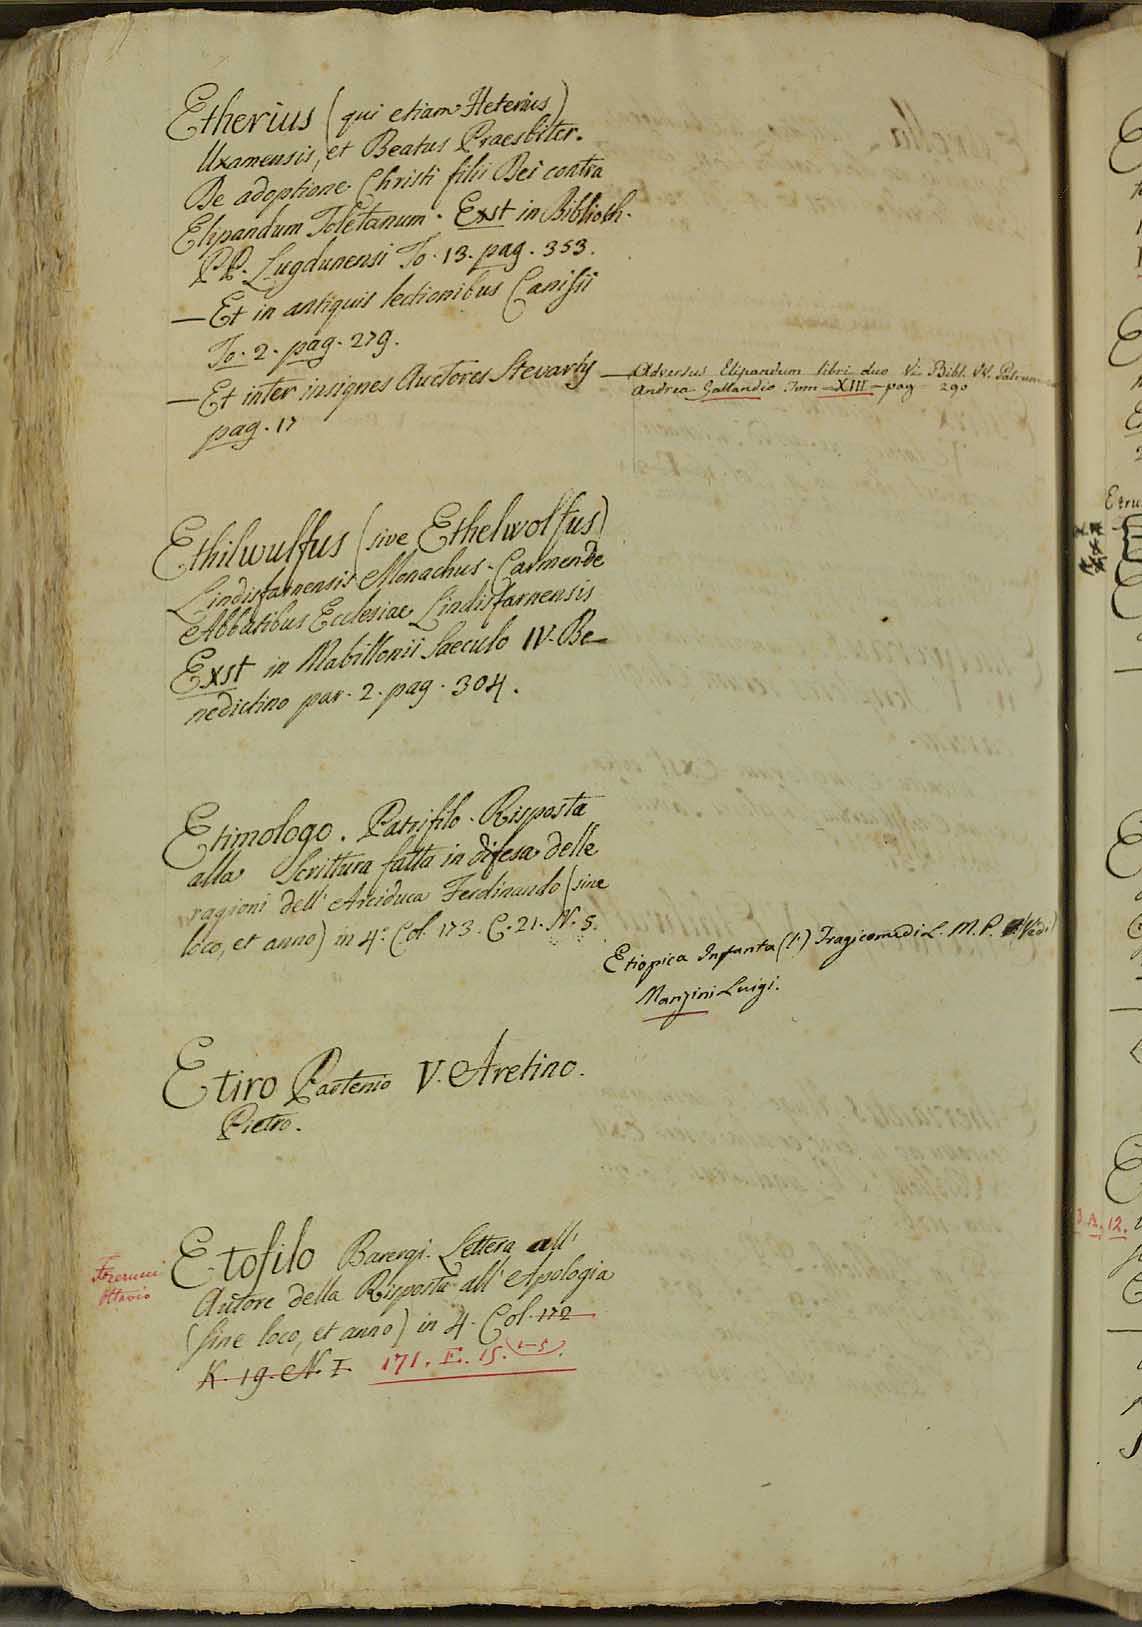 Etherius (qui etiam Heterius)
Uxamensis, et Beatus Praesbiter.
De adoptione Christi filii Dei contra
Elipandum Toletanum. Exst in Biblioth.
PP. Lugdunensi To. 13. pag. 353.
— Et in antiquis lectionibus Canisii
To. 2. pag. 279.
— Et inter insignes Auctores Stevartij
pag. 17
— Adversus Elipandum libri duo Bibl. VV. Patrum
Andrea Gallandio Tom. XIII — pag 290
Ethilwulfus (sive Ethelwolfus)
Lindisfarnensis Monachus. Carmen de
Abbatibus Ecclesiae Lindisfarnensis
Exst in Mabillonii Saeculo IV. Be-
nedictino par. 2. pag. 304.
Etimologo. Patrifilo. Risposta
alla Scrittura fatta in difesa delle
ragioni dell' Arciduca Ferdinando (sine
loco, et anno) in 4.° Col. 173. C. 21. N. 5.
Etiopica Infanta (l') Tragicomedi L. M. P. (Vedi)
Manzini Luigi.
Etiro Partenio V. Aretino.
Pietro.
Ottavio
Etofilo Barergi. Lettera all'
Autore della Risposta all' Apologia
(sine loco, et anno) in 4. Col. 172
K. 19. N. I 171. E. 15. (1-5).
Etru
12.